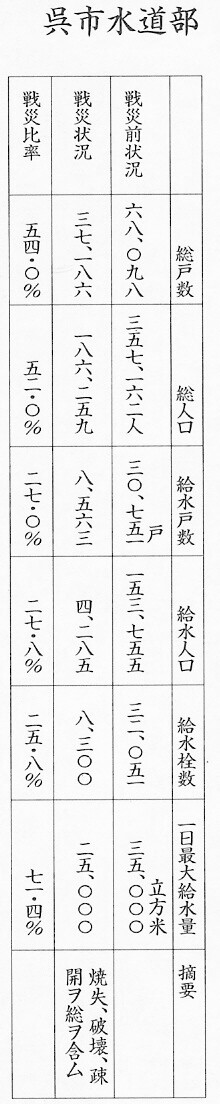 呉市水道部
総戸数
総人口
給水戸数
給水人口
給水栓数
一日最大給水量
摘要
戦災前状況
六八、〇九八
三五七、一六二人
三〇、七五一戸
一五三、七五五
三二、〇五一
三五、〇〇〇立方米
戦災状況
三七、一八六
一八六、二五九
八、五六三
四、二八五
八、三〇〇
二五、〇〇〇
焼失、破壊、疎
開ヲ総ヲ含ム
戦災比率
五四・〇%
五二・〇%
二七・〇%
二七・八%
二五・八%
七一・四%